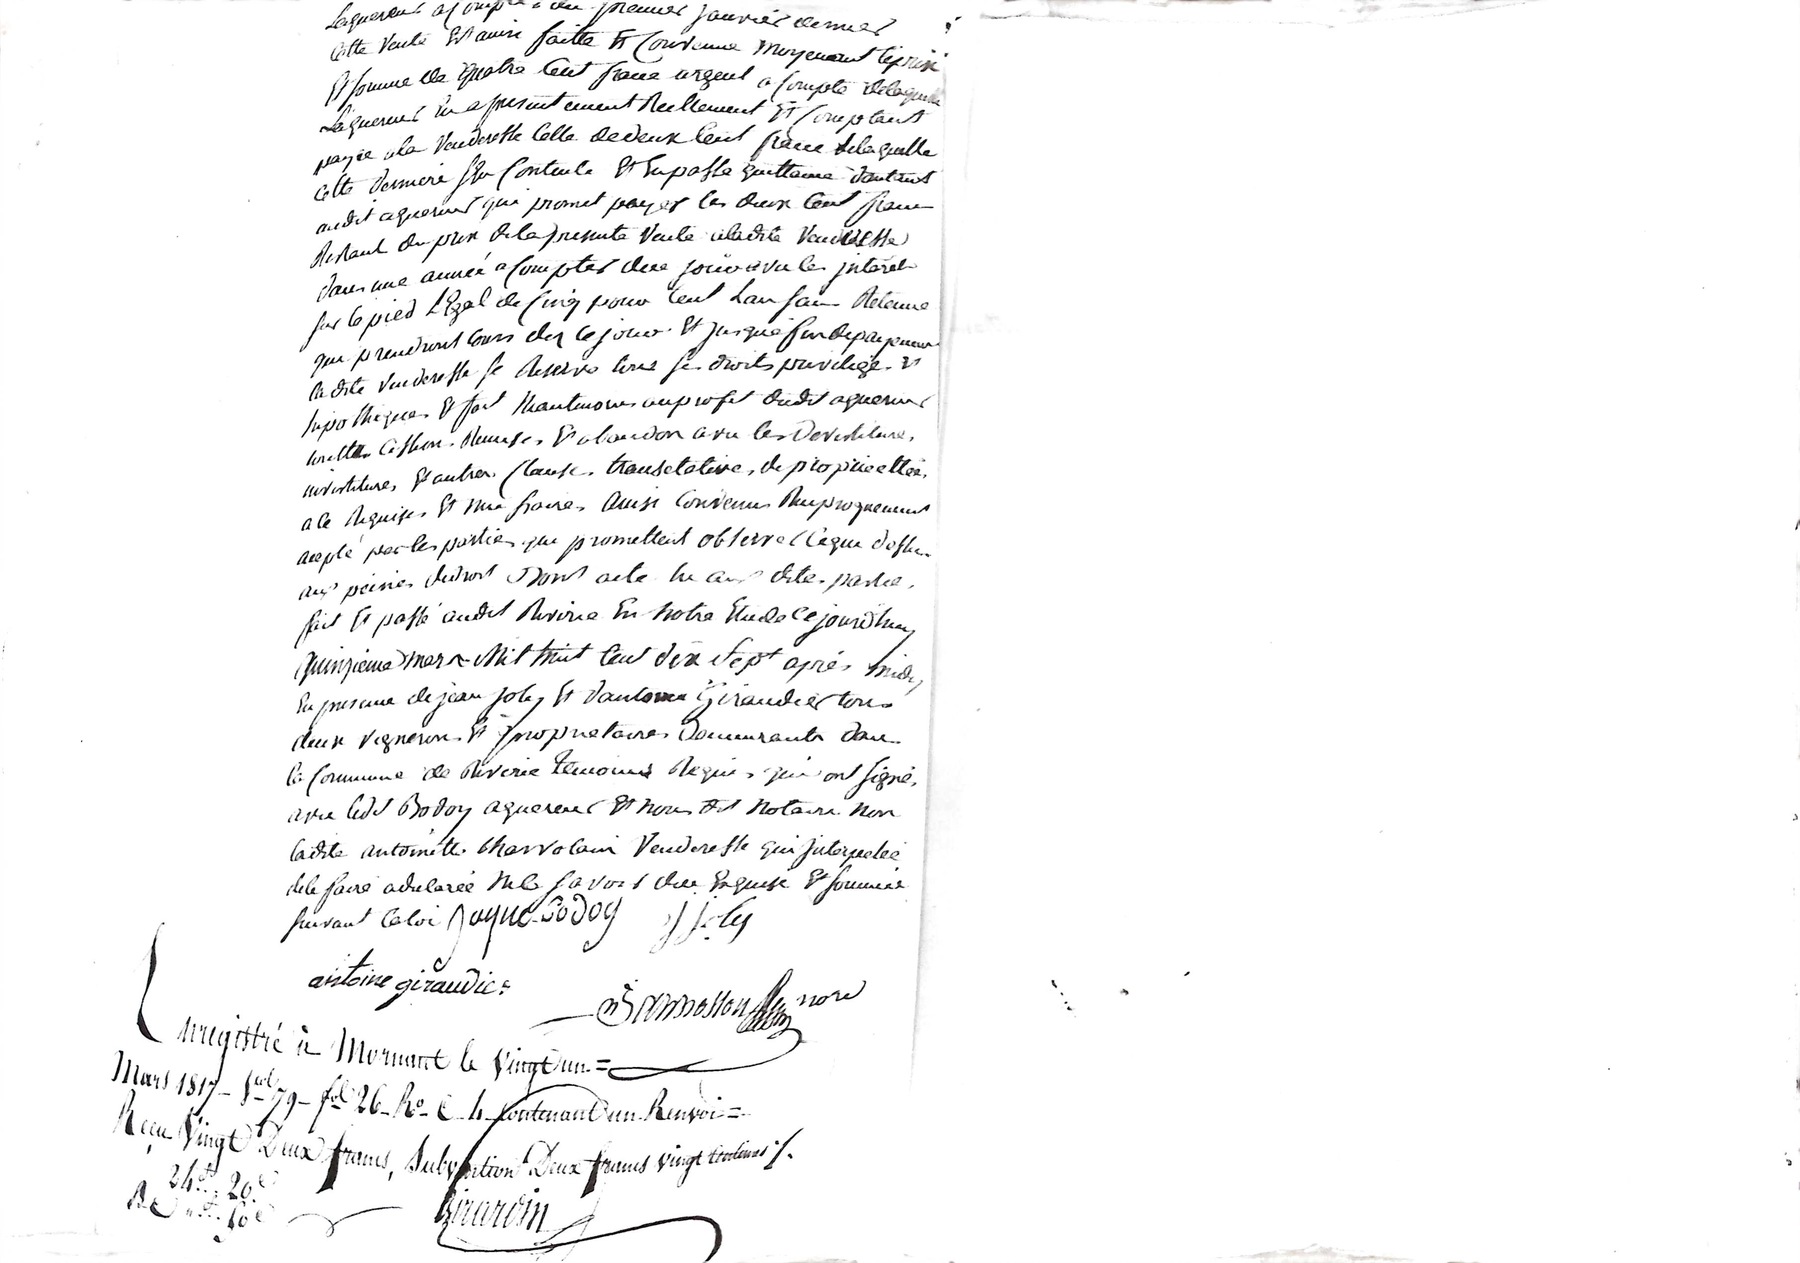 laquereur a Compter du premier janvier dernier
Cette Vente Est ainsi faitte Et Convenue Moyenant le prix
Et somme de quatre Cent franc argent a Compte de laquelle
Laquereur En a presentement Reellement Et Comptant
payée a la Venderesse Celle de deux Cent franc de laquelle
Cette derniere S'En Contente Et En passe quittance d'autant
audit aquereur qui promet payer les deux Cent franc
Restant du prix de la presente Vente a ladite Venderesse
dans une année a Compter de ce jour avec les interet
sur le pied Légal de Cinq pour Cent L'an sans Retenue
qui prendront Cours dez ce jour Et jusque fin de payement
ladite Venderesse se Reserve tous ses droits privilege Et
hipotheques Et fait Maintenant au profit dudit aquereur
toutte Cession Remises Et abandon avec les Devestitures,
investitures Et autres Clauses translatives de propriettée
a ce Requises Et necessaires Ainsi Convenu Reciproquement
accepté par les parties qui promettent observer Ce que dessus
aux peines du droit Dont acte lu aux dites parties,
fait Et passé audit Riverie En notre Etude Ce jourd'huy
quinzieme mars Mil huit Cent dix sept après midy
En presence de jean joly Et d'antoine Giraudier tous
deux vignerons Et propriétaires demeurants dans
la Commune de Riverie temoins Requis qui ont signé,
avec ledit Bodoy aquereur Et nous dit notaire non
ladite antoinette Charvolain Venderesse qui interpelée
de le faire a declarée Ne le savoir de ce Enquise Et sommée
suivant la loi jaque Bodoy J joly
antoine giraudier
nore
Enregistré à Mornant le Vingt un =
Mars 1817 - vol 79 - fol 26 Ro C 4 contenant un Renvoi =
Reçu Vingt Deux francs, Subvention Deux francs vingt centimes /.
24 . 20 c
Girardin